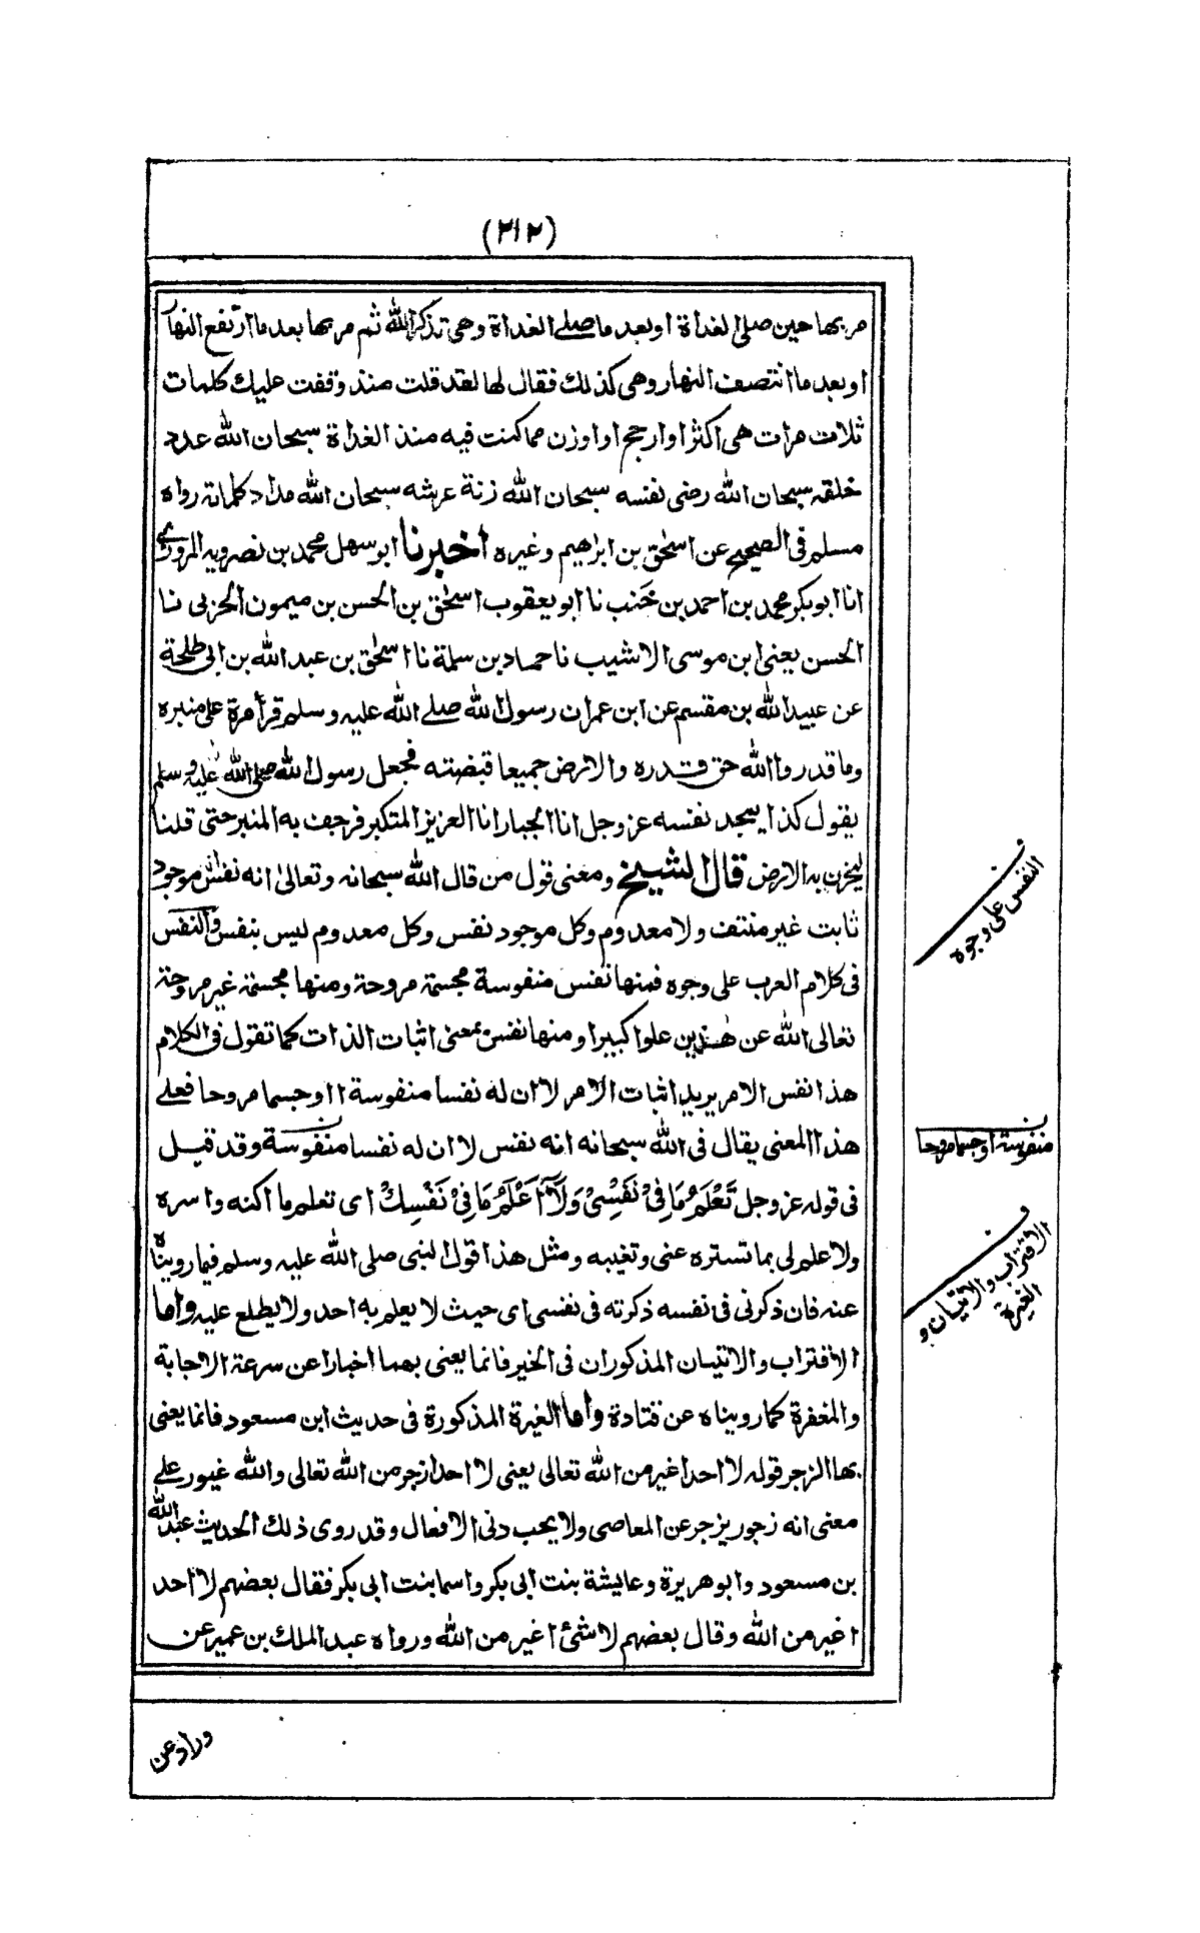 (٢١٢)
مر بها حين صلى الغداة او بعد ما صلے الغداة وهى تذكر الله ثم مر بها بعد ما ارتفع النهار
او بعد ما انتصف النهار وهى كذلك فقال لها لقد قلت منذ وقفت عليك كلمات
ثلاث مرات هى اكثر او ارجح او اوزن مما كنت فيه منذ الغداة سبحان الله عدد
خلقه سبحان الله رضى نفسه سبحان الله زنة عرشه سبحان الله مداد كلماته رواه
مسلم فى الصحيح عن اسحٰق بن ابراهيم وغيره اخبرنا ابو سهل محمد بن نصرويه المروزے
انا ابو بكر محمد بن احمد بن خَنب نا ابو يعقوب اسحٰق بن الحسن بن ميمون الحربى نا
الحسن يعنى ابن موسى الاشيب نا حماد بن سلمة نا اسحٰق بن عبد الله بن ابى طلحة
عن عبيد الله بن مقسم عن ابن عمر ان رسول الله صلے الله عليه وسلم قرأ مرة على منبره
وما قدروا الله حق قدره والارض جميعا قبضته فجعل رسول الله صلى الله عليه وسلم
يقول كذا يمجد نفسه عز وجل انا الجبار انا العزيز المتكبر فرجف به المنبر حتى قلنا
ليخرن به الارض قال الشيخ ومعنى قول من قال الله سبحانه وتعالىٰ انه نفس انه موجود
ثابت غير منتف ولا معدوم وكل موجود نفس وكل معدوم ليس بنفس والنفس
فى كلام العرب على وجوه فمنها نفس منفوسة مجسمة مروحة ومنها مجسمة غير مروحة
تعالى الله عن هٰذين علوا كبيرا ومنها نفس بمعنى اثبات الذات كما تقول فى الكلام
هذا نفس الامر يريد اثبات الامر لا ان له نفسا منفوسة ا اوجسما مروحا فعلے
هذا المعنى يقال فى الله سبحانه انه نفس لا ان له نفسا منفوسة وقد قيل
فى قوله عز وجل تَعْلَمُ مَا فِىْ نَفْسِىْ وَلَآ اَعْلَمُ مَا فِىْ نَفْسِكْ اى تعلم ما اكنه واسره
ولا علم لى بما تستره عنى وتغيبه ومثل هذا قول النبى صلى الله عليه وسلم فيما رويناه
عنه فان ذكرنى فى نفسه ذكرته فى نفسى اى حيث لا يعلم به احد ولا يطلع عليه واما
الاقتراب والاتيان المذكوران فى الخبر فانما يعنى بهما اخبارا عن سرعة الاجابة
والمغفرة كما رويناه عن قتادة واما الغيرة المذكورة فى حديث ابن مسعود فانما يعنى
بها الزجر قوله لا احد اغير من الله تعالى يعنى لا احد ازجر من الله تعالى والله غيور علے
معنى انه زجور يزجر عن المعاصى ولا يحب دنى الافعال وقد روى ذلك الحديث عبد الله
بن مسعود وابو هريرة وعايشة بنت ابى بكر واسما بنت ابى بكر فقال بعضهم لا احد
اغير من الله وقال بعضهم لا شئ اغير من الله ورواه عبد الملك بن عمير عن
وراد عن
ف
النفس على وجوه
ن
منفوسة اوجسما مروحا
ف
الاقتراب والاتيان و
الغيرة